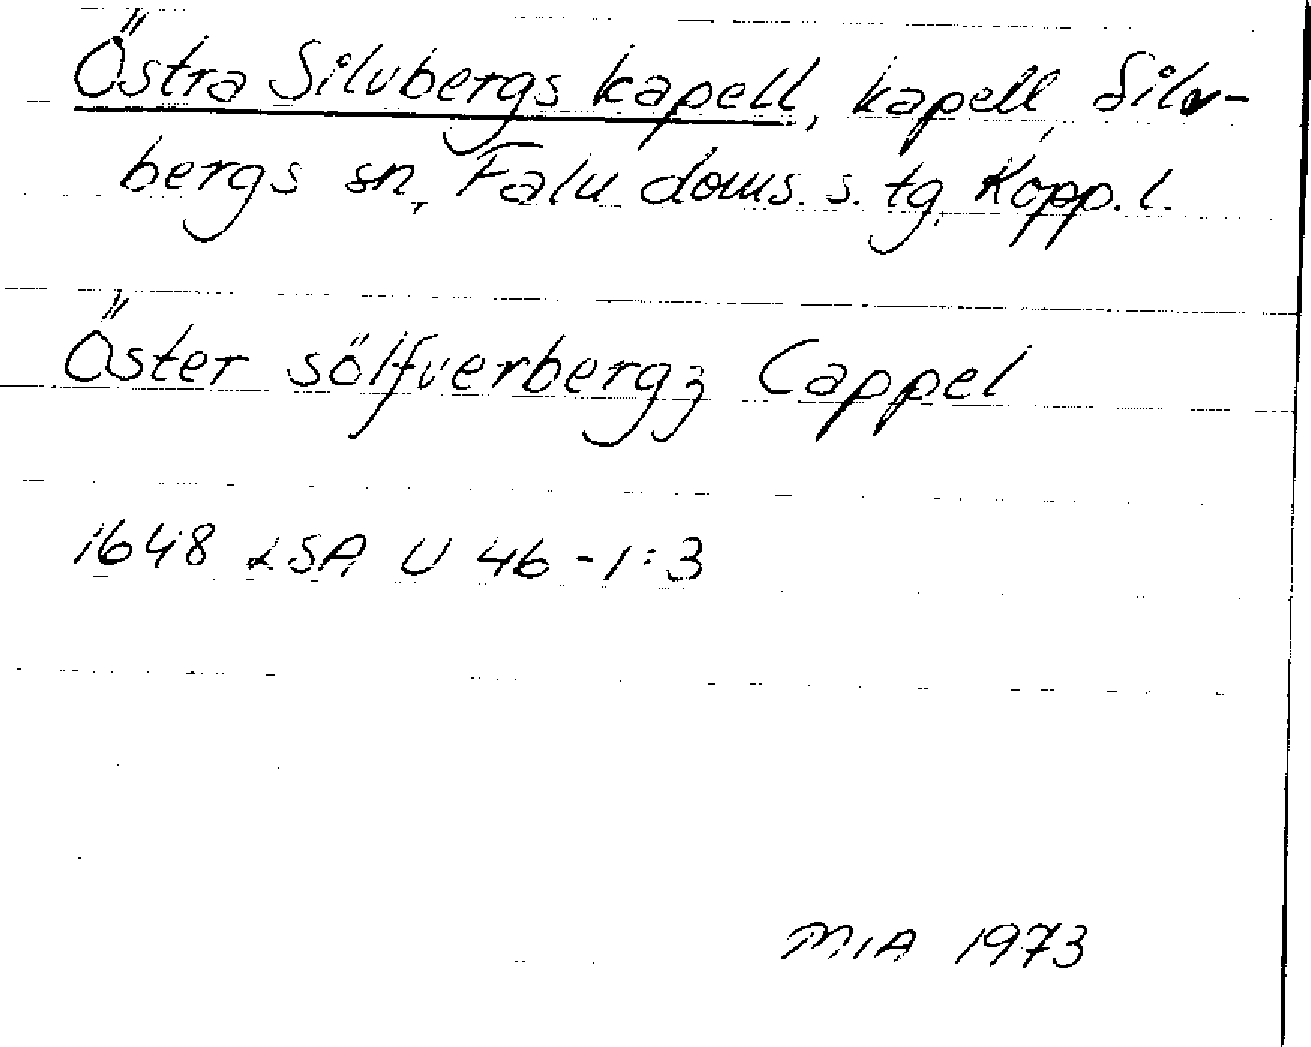 Östra Silvbergs kapell, kapell, Silv-
bergs sn, Falu doms. s. tg, Kopp. l.
Öster sölfverbergz Cappel
1648 LSA U 46-1:3
MIA 1973